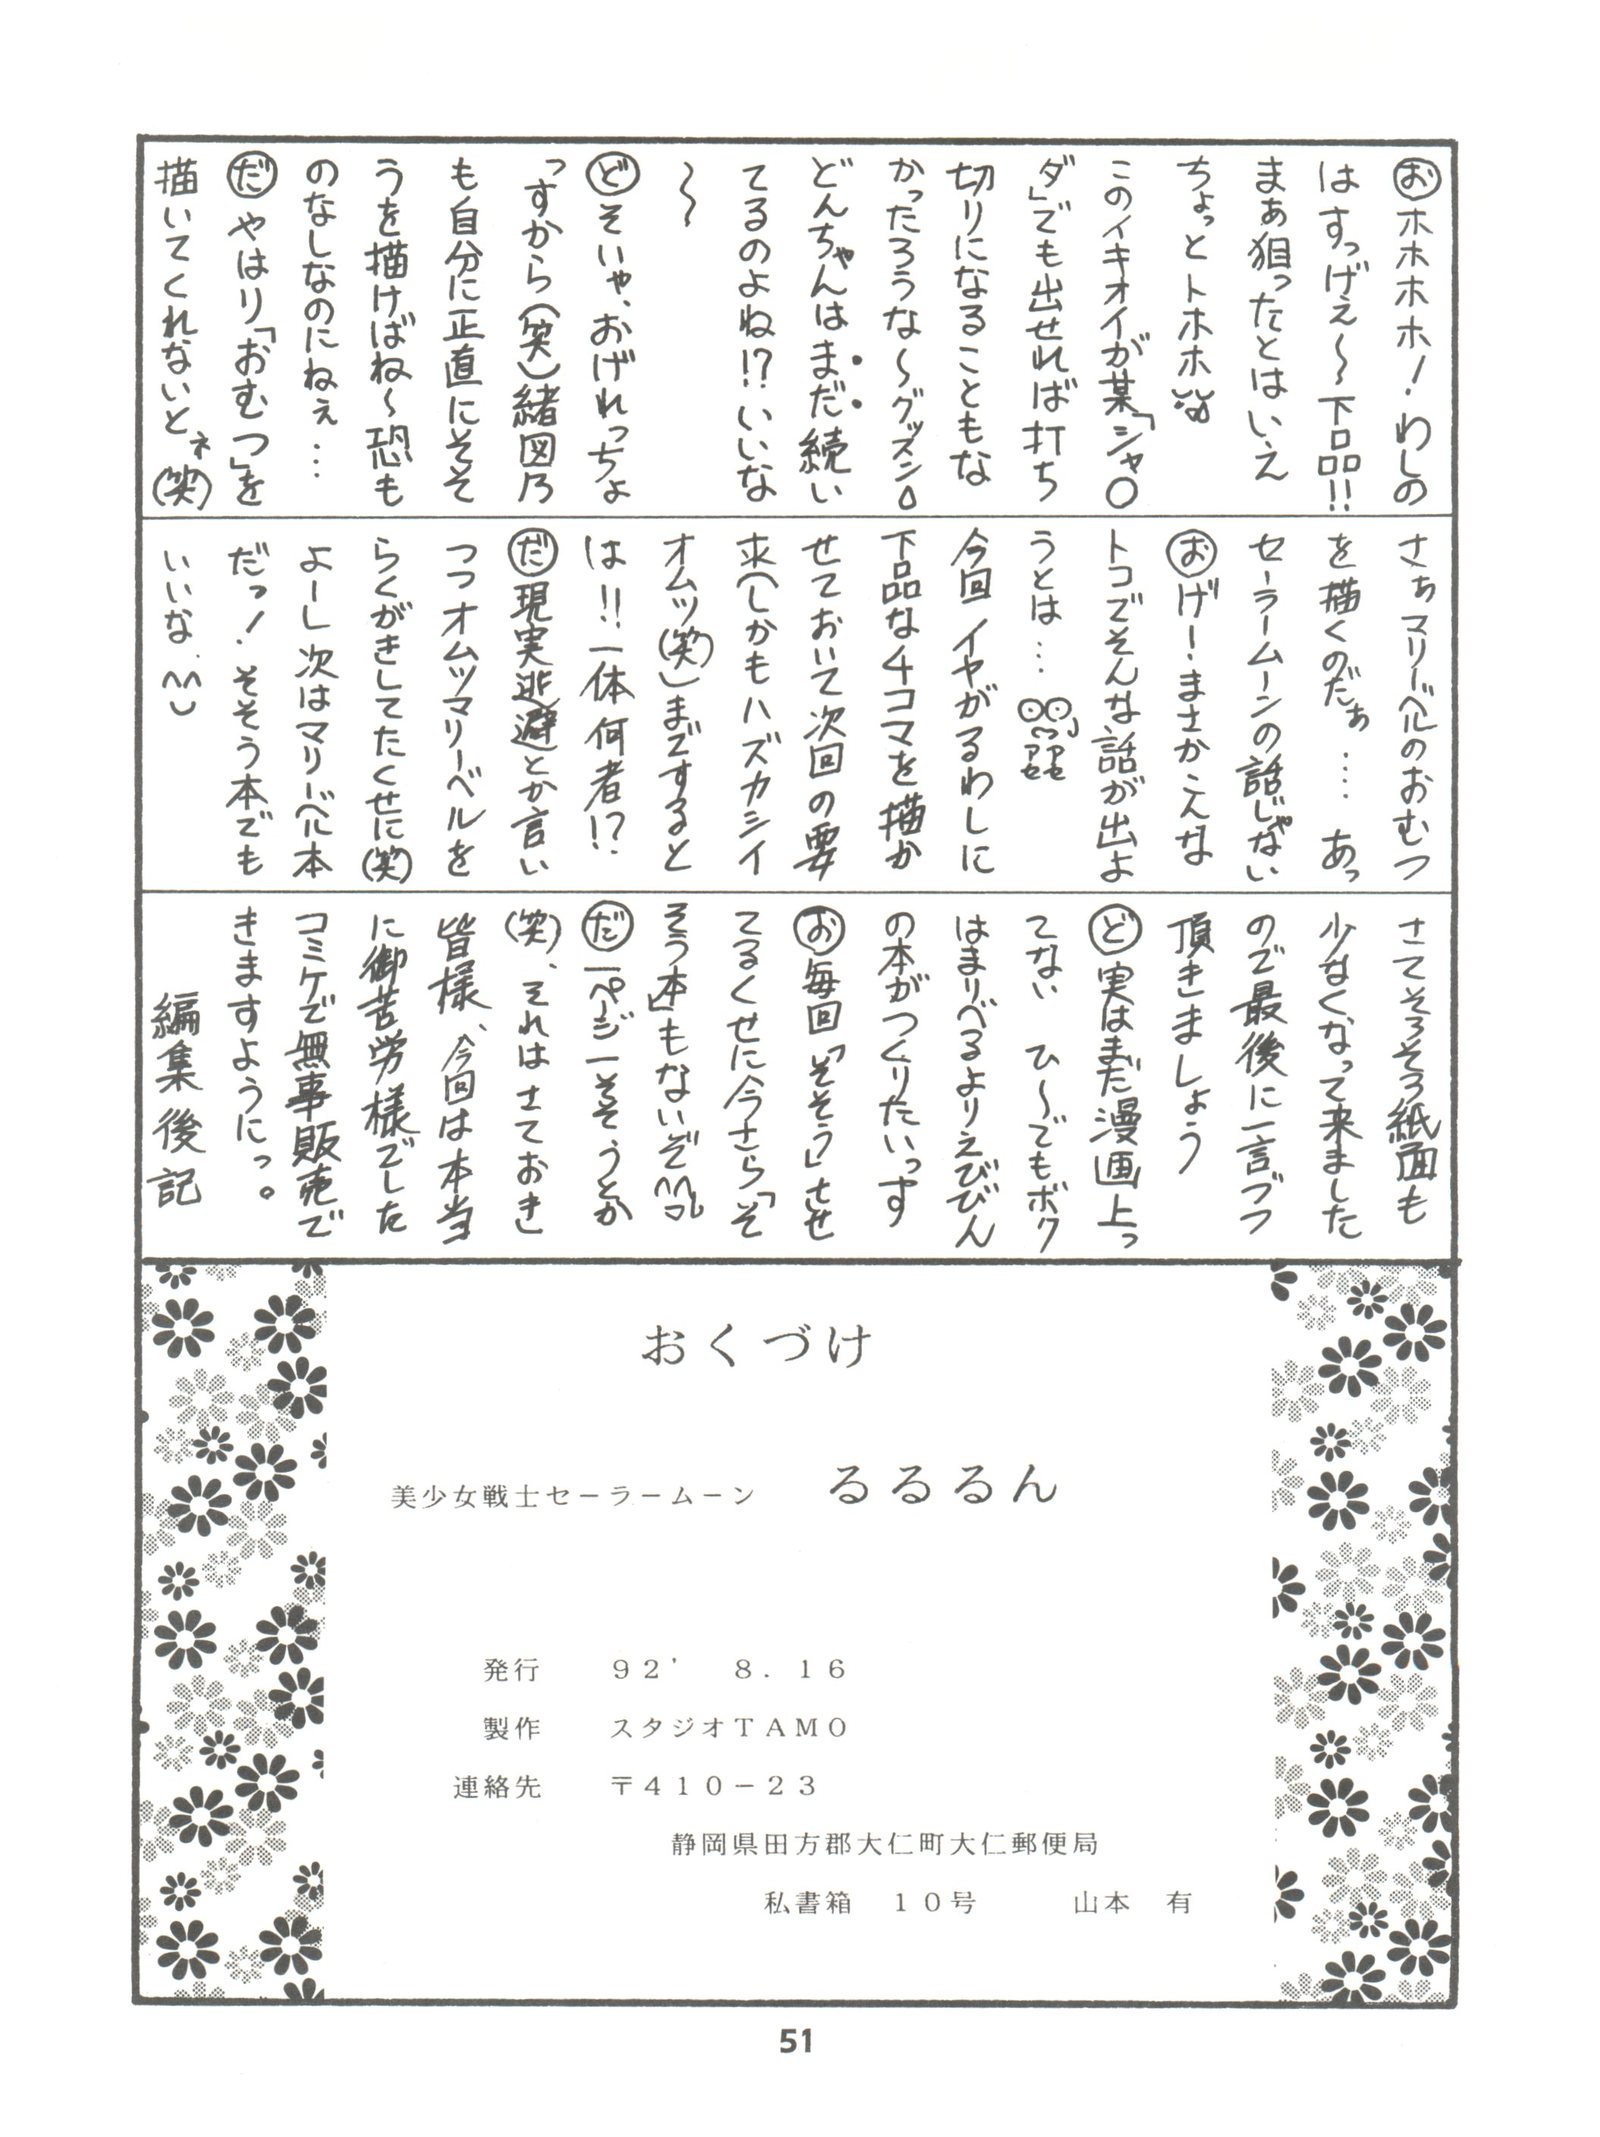 おホホホホ！わしの
はすっげぇ〜下品!!
まぁ狙ったとはいえ
ちょっとトホホ
このイキオイが某「シャ〇
ダ」でも出せれば打ち
切りになることもな
かったろうな〜グッスン
どんちゃんはまだ続い
てるのよね!?いいな
〜
どそいや、おげれっちょ
っすから(笑)緒図乃
も自分に正直にそそ
うを描けばね〜恐も
のなしなのにねぇ…
だやはり「おむつ」を
描いてくれないとネ(笑)
さぁマリーベルのおむつ
を描くのだぁ…. あっ
セーラームーンの話じゃない
おげー！まさかこんな
トコでそんな話が出よ
うとは…
今回イヤがるわしに
下品な4コマを描か
せておいて次回の要
求(しかもハズカシイ
オムツ(笑))まですると
は!!一体何者!?
だ現実逃避とか言い
つつオムツマリーベルを
らくがきしてたくせに(笑)
よーし次はマリーベル本
だっ！そそう本でも
いいな.^^
さてそろそろ紙面も
少なくなって来ました
ので最後に一言づつ
頂きましょう
ど実はまだ漫画上っ
てない ひ〜でもボク
はまりべるよりえびびん
の本がつくりたいっす
お毎回「そそう」させ
てるくせに今さら「そ
そう本」もないぞ^^
だ一ページ一そそうとか
(笑)、それはさておき
皆様、今回は本当
に御苦労様でした
コミケで無事販売で
きますようにっ。
編集後記
おくづけ
美少女戦士セーラームーン るるるん
発行 92' 8.16
製作 スタジオTAMO
連絡先 〒410-23
静岡県田方郡大仁町大仁郵便局
私書箱 10号 山本 有
51